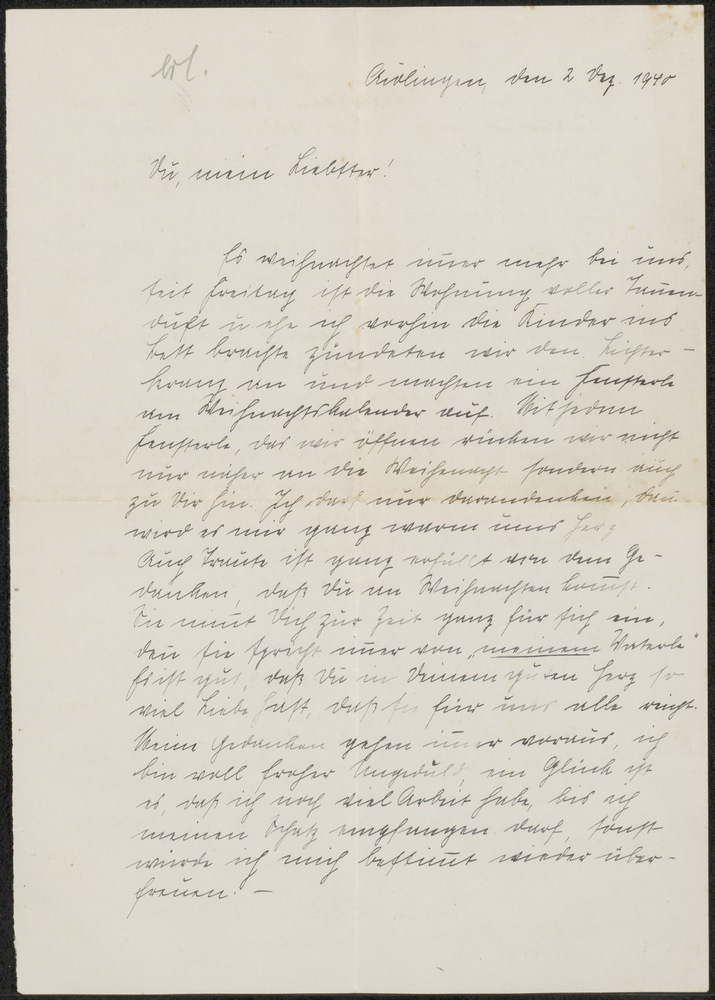 erl.
Aidlingen, den 2 Dez. 1940
Du, mein Liebster!
Es weihnachtet im̅er mehr bei uns,
seit Freitag ist die Wohnung voller Tan̅en-
duft u. ehe ich vorhin die Kinder ins
Bett brachte zündeten wir den Lichter-
kranz an und machten ein Fensterle
am Weihnachtskalender auf. Mit jedem
Fensterle, das wir öffnen rücken wir nicht
nur näher an die Weihenacht sondern auch
zu Dir hin. Ich darf nur darandenken, dan̅
wird es mir ganz warm ums Herz
Auch Traute ist ganz erfüllt von dem Ge-
danken, daß Du an Weihnachten kom̅st.
Sie nim̅t Dich zur Zeit ganz für sich ein,
den̅ sie spricht im̅er von „meinem Vaterle"
Es ist gut, daß Du in Deinem guten Herz so
viel Liebe hast, daß sie für uns alle reicht.
Meine Gedanken gehen im̅er voraus, ich
bin voll froher Ungeduld, ein Glück ist
es, daß ich noch viel Arbeit habe, bis ich
meinen Schatz empfangen darf, sonst
würde ich mich bestim̅t wieder über-
freuen. –